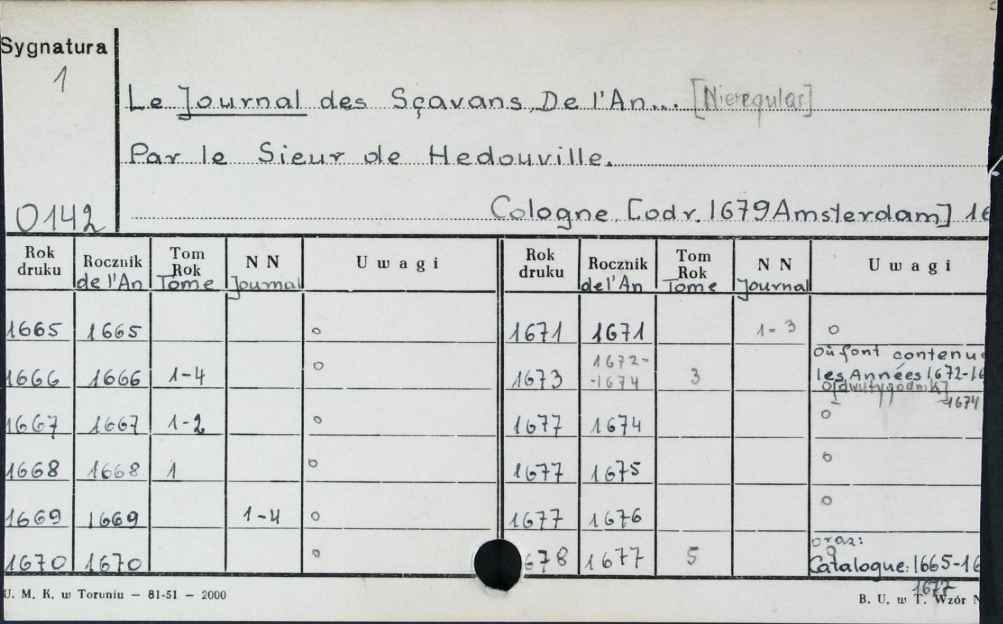 Sygnatura
1
0142
Le Journal des Sçavans, De l'An... [Nieregular]
Par le Sieur de Hedouville.
Cologne [od r. 1679 Amsterdam] 16
Rok druku Rocznik de l'An Tom Rok Tome N N Journal Uwagi Rok druku Rocznik de l'An Tom Rok Tome N N Journal Uwagi
1665 1665 o 1671 1671 1-3 o
1666 1666 1-4 o 1673 1672-1674 3 où font contenu les Années 1672-16
o [dwutygodnik] -1674
1667 1667 1-2 o 1677 1674 o
1668 1668 1 o 1677 1675 o
1669 1669 1-4 o 1677 1676 o
1670 1670 o 678 1677 5 oraz: Catalogue: 1665-16
1677
U. M. K. w Toruniu — 81-51 — 2000
B. U. w T. Wzór N